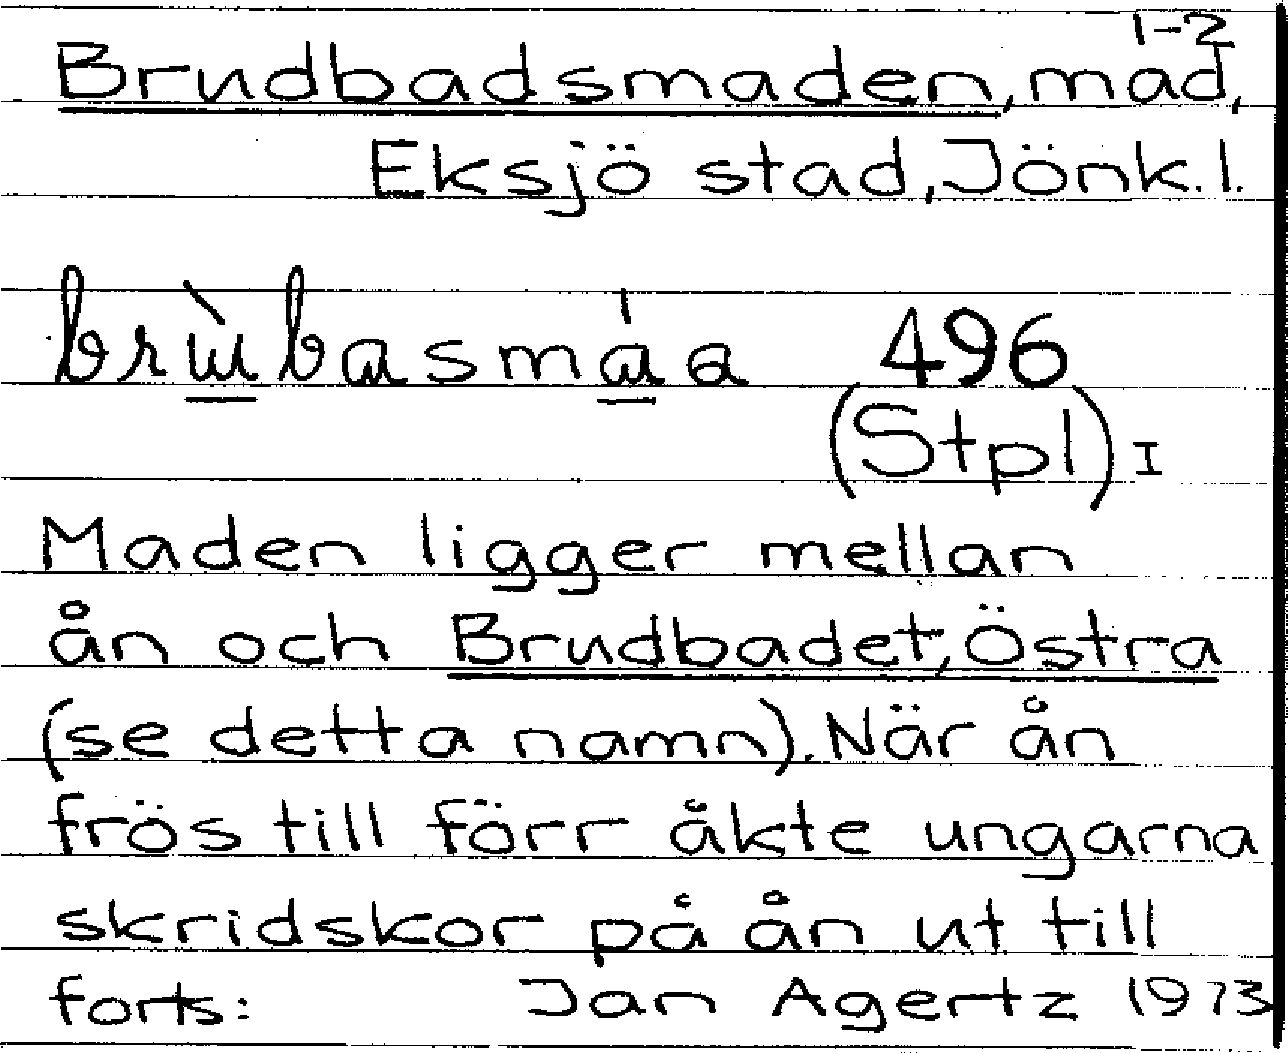 1-2
Brudbadsmaden, mad,
Eksjö stad, Jönk.l.
496
(Stpl) I
Maden ligger mellan
ån och Brudbadet, Östra
(se detta namn). När ån
frös till förr åkte ungarna
skridskor på ån ut till
forts: Jan Agertz 1973